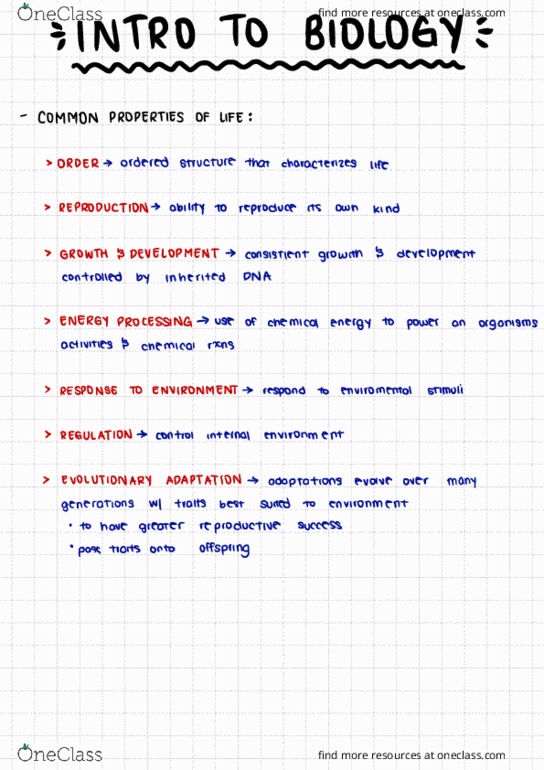 OneClass
find more resources at oneclass.com
INTRO TO BIOLOGY
- COMMON PROPERTIES OF LIFE:
> ORDER → ordered structure that characterizes life
> REPRODUCTION → ability to reproduce its own kind
> GROWTH & DEVELOPMENT → consistient growth & development
controlled by inherited DNA
> ENERGY PROCESSING → use of chemical energy to power an organisms
activities & chemical rxns
> RESPONSE TO ENVIRONMENT → respond to enviromental stimuli
> REGULATION → control internal environment
> EVOLUTIONARY ADAPTATION → adaptations evolve over many
generations w/ traits best suited to environment
• to have greater reproductive success
• pass traits onto offspring
OneClass
find more resources at oneclass.com